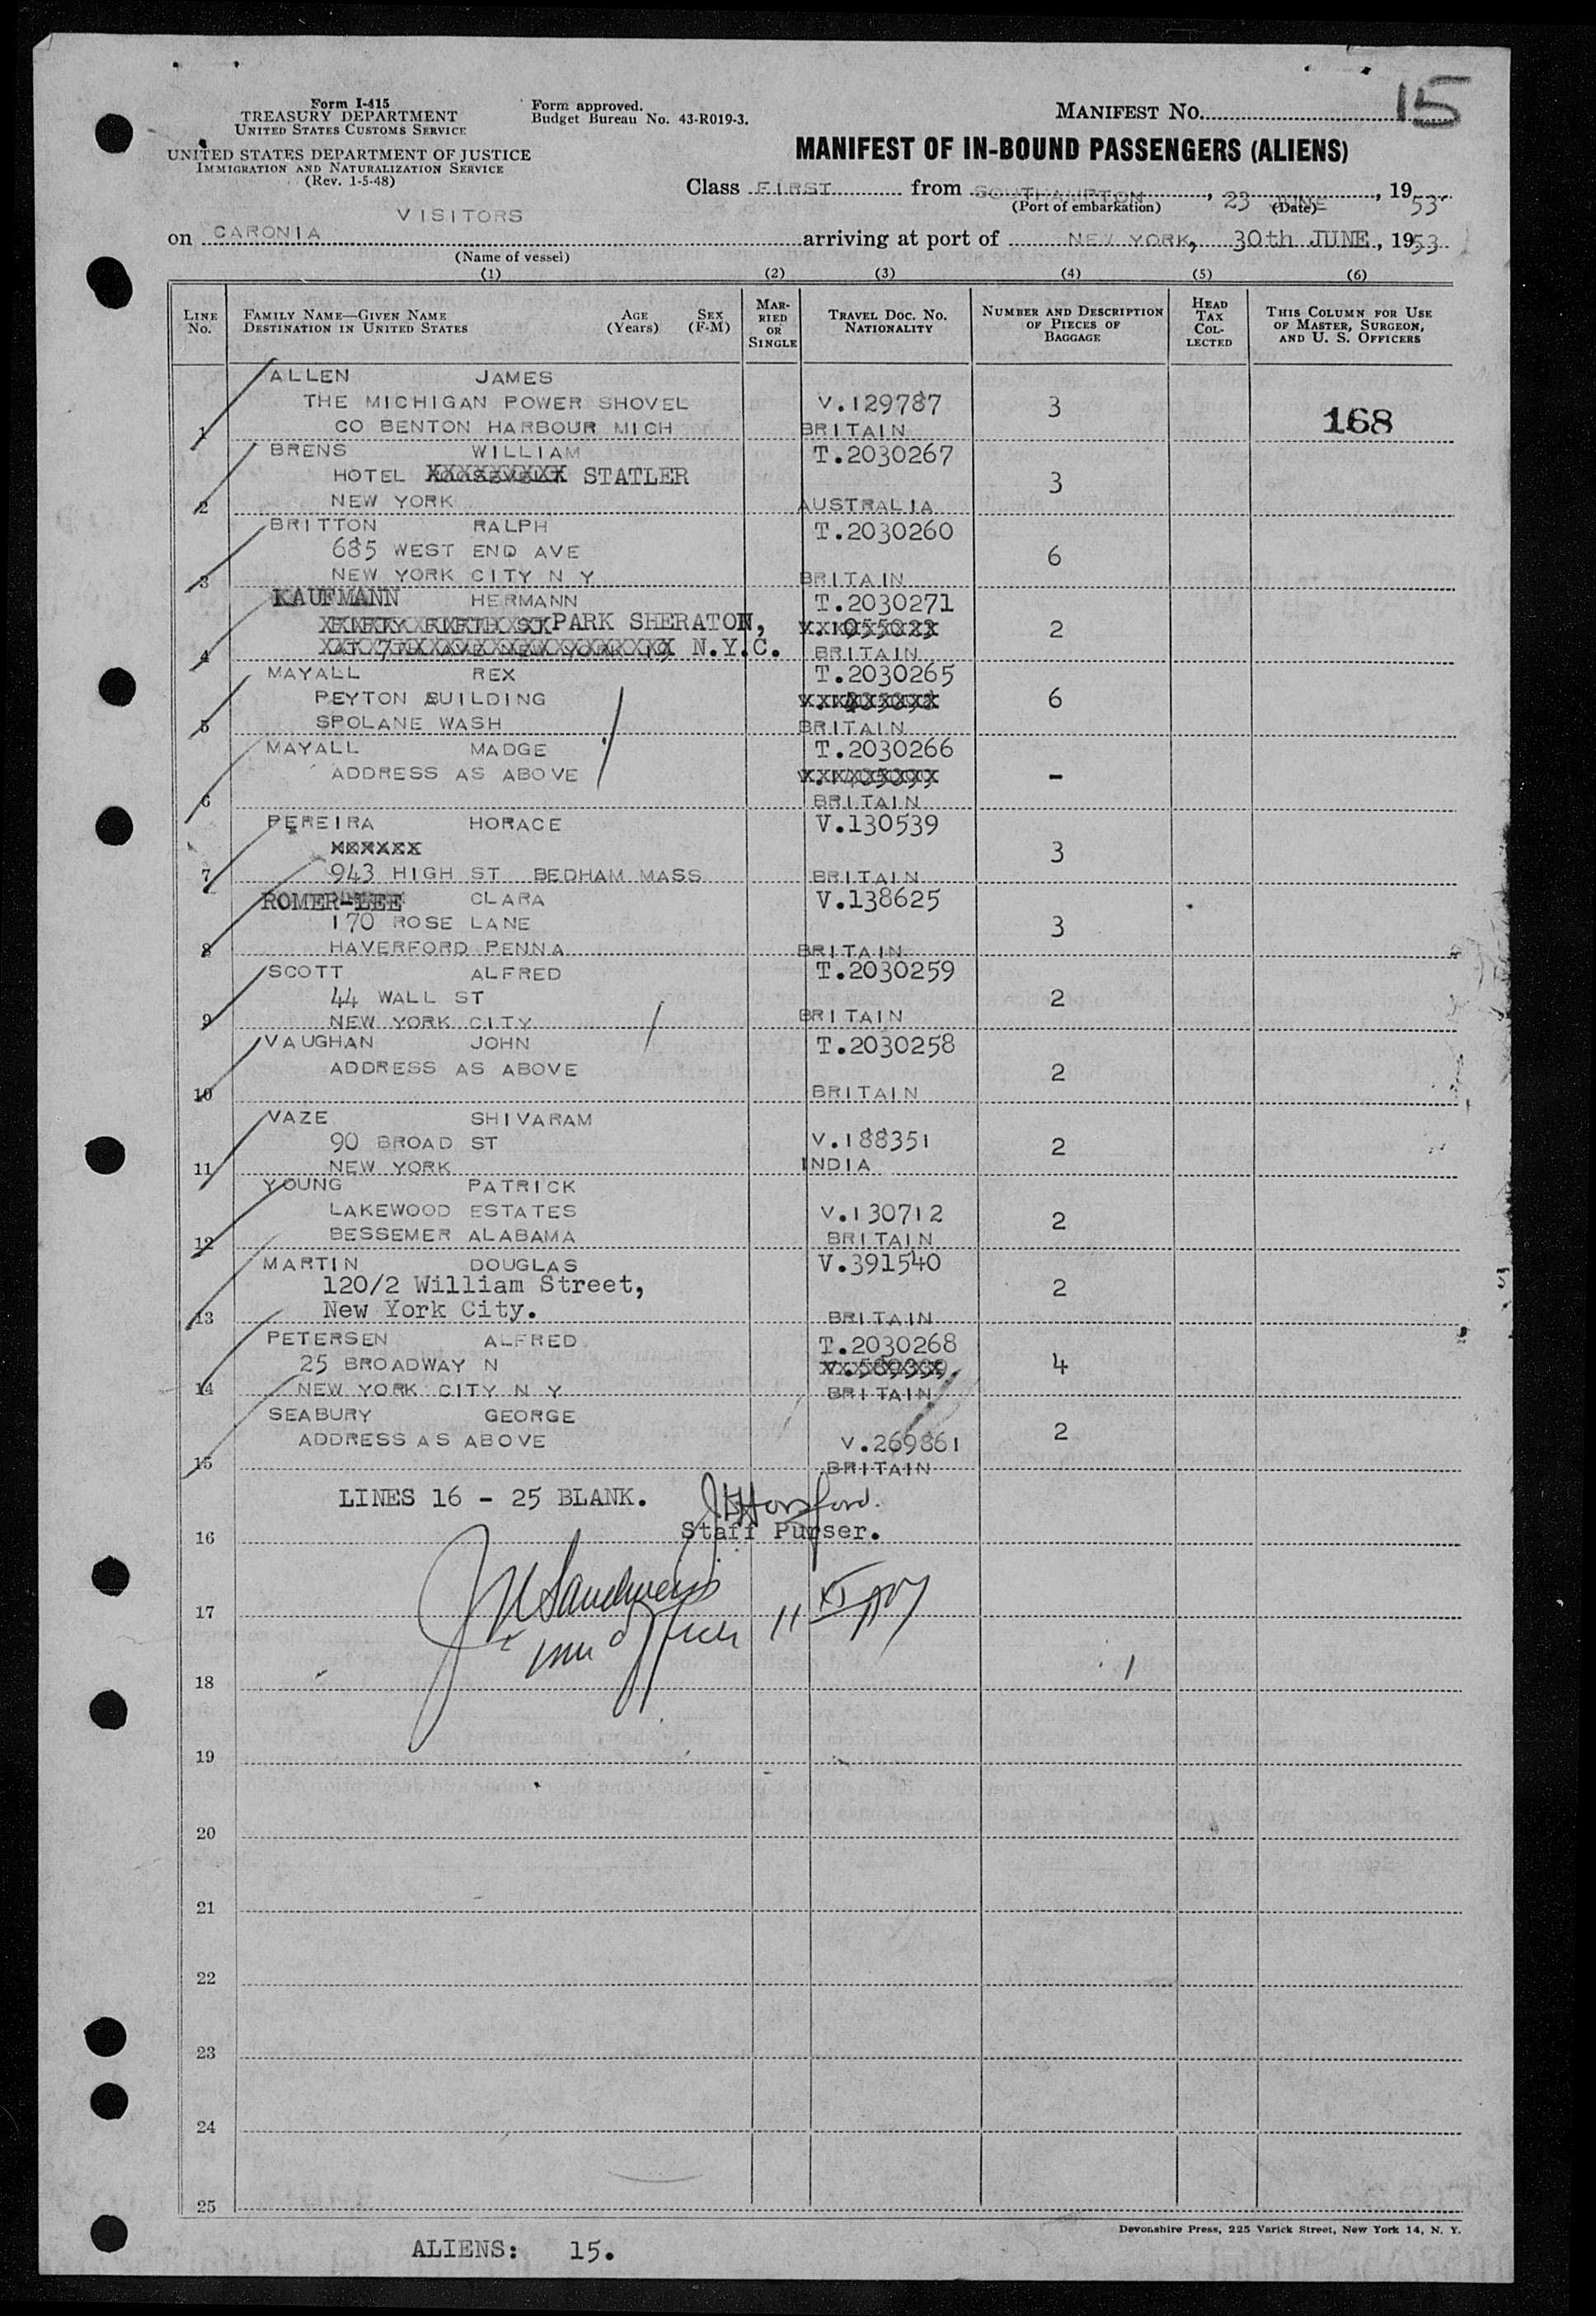 Form I-415
TREASURY DEPARTMENT
UNITED STATES CUSTOMS SERVICE
UNITED STATES DEPARTMENT OF JUSTICE
IMMIGRATION AND NATURALIZATION SERVICE
(Rev. 1-5-48)
Form approved.
Budget Bureau No. 43-R019-3.
MANIFEST NO. 15
MANIFEST OF IN-BOUND PASSENGERS (ALIENS)
Class FIRST from SOUTHAMPTON, 23 JUNE, 1953
(Port of embarkation) (Date)
VISITORS
on CARONIA arriving at port of NEW YORK, 30th JUNE, 1953
(Name of vessel)
(1) (2) (3) (4) (5) (6)
LINE No. FAMILY NAME—GIVEN NAME DESTINATION IN UNITED STATES AGE (Years) SEX (F-M) MARRIED OR SINGLE TRAVEL DOC. NO. NATIONALITY NUMBER AND DESCRIPTION OF PIECES OF BAGGAGE HEAD TAX COLLECTED THIS COLUMN FOR USE OF MASTER, SURGEON, AND U. S. OFFICERS
ALLEN JAMES
THE MICHIGAN POWER SHOVEL V.129787 3 168
1 CO BENTON HARBOUR MICH BRITAIN
BRENS WILLIAM T.2030267
HOTEL STATLER 3
2 NEW YORK AUSTRALIA
BRITTON RALPH T.2030260
685 WEST END AVE 6
3 NEW YORK CITY N Y BRITAIN
KAUFMANN HERMANN T.2030271
PARK SHERATON, 2
4 N.Y.C. BRITAIN
MAYALL REX T.2030265
PEYTON BUILDING 6
5 SPOLANE WASH BRITAIN
MAYALL MADGE T.2030266
ADDRESS AS ABOVE -
6 BRITAIN
PEREIRA HORACE V.130539
3
7 943 HIGH ST BEDHAM MASS BRITAIN
ROMER-LEE CLARA V.138625
170 ROSE LANE 3
8 HAVERFORD PENNA BRITAIN
SCOTT ALFRED T.2030259
44 WALL ST 2
9 NEW YORK CITY BRITAIN
VAUGHAN JOHN T.2030258
ADDRESS AS ABOVE 2
10 BRITAIN
VAZE SHIVARAM
90 BROAD ST V.188351 2
11 NEW YORK INDIA
YOUNG PATRICK
LAKEWOOD ESTATES V.130712 2
12 BESSEMER ALABAMA BRITAIN
MARTIN DOUGLAS V.391540
120/2 William Street, 2
13 New York City. BRITAIN
PETERSEN ALFRED T.2030268
25 BROADWAY N 4
14 NEW YORK CITY N Y BRITAIN
SEABURY GEORGE 2
ADDRESS AS ABOVE V.269861
15 BRITAIN
LINES 16 - 25 BLANK.
16 Staff Purser.
17
18
19
20
21
22
23
24
25
Devonshire Press, 225 Varick Street, New York 14, N. Y.
ALIENS: 15.